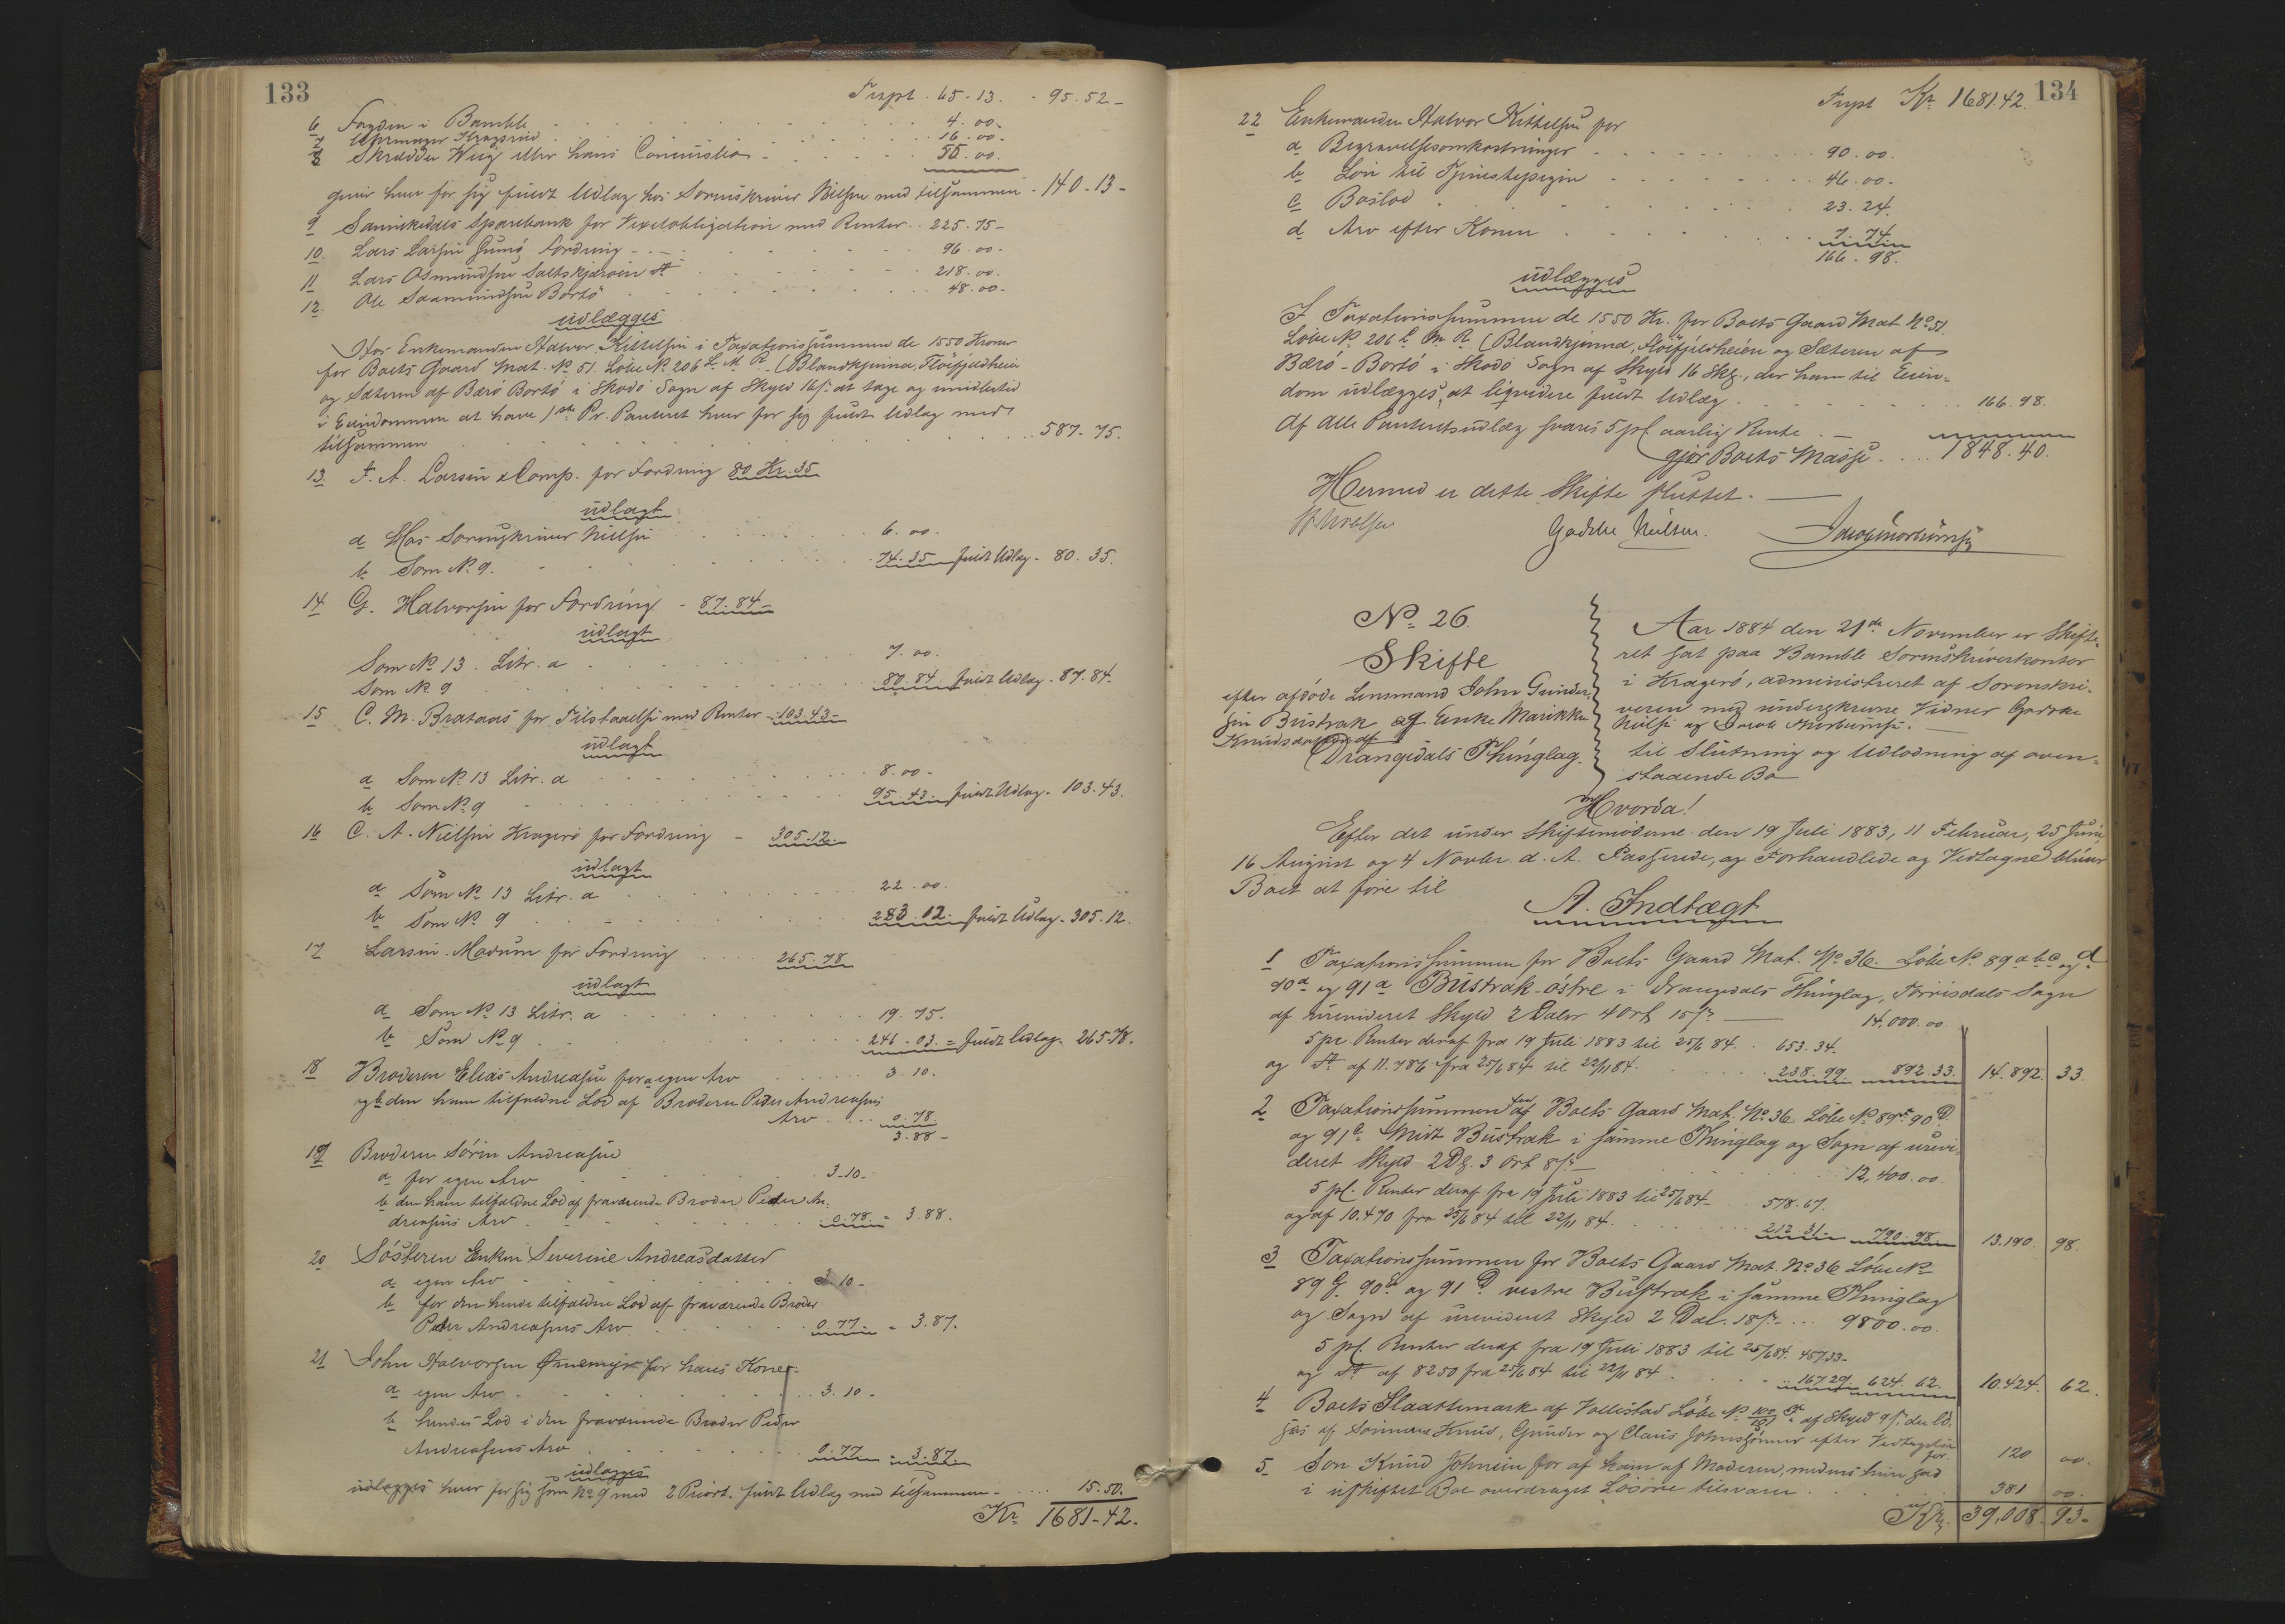 133
Trspt. 65-13. - 95.52-
6 Fogden i Bamble 4.00-
7 Uhrmager Kragerø 16.00-
8 Skrædder Wiig eller hans Concursbo 55.00.
giver hver for sig fuldt Udlag hos Sorenskriver Nielsen med tilsammen - 140-13-
9 Sannikedals Sparebank for Vexelobligation med Renter 225.75-
10. Lars Larsen Gumø, Fordring 96.00-
11 Lars Osmundsen Saltskjæroen dto 218.00.
12. Ole Saamundsen Bortø 48.00-
udlægges
Hos Enkemanden Halvor Kittelsen i Taxationssummen de 1550 Kroner
for Boets Gaard Mat. No 51. Løbe No 206 L. M. R. (Blandkjenna, Fløifjeldheien
og Sæteren af Bærø Bortø i Skodø Sogn af Skyld 16 s. at tage og imidlertid
i Eiendommen at have 1ste Pr. Panteret hver for sig fuldt Udlag med
tilsammen 587-75.
13. F. A. Larsen & Comp. for Fordring 80 Kr. 35
udlagt
a Hos Sorenskriver Nielsen 6.00.
b Som No 9. 74.35 fuldt Udlag - 80.35.
14 G. Halvorsen for Fordring - 87.84-
udlagt
Som No 13. Litr. a 7.00.
Som No 9 80.84 fuldt Udlag - 87.84.
15 C. M. Brataas for Tilstaaelse med Renter - 103.43-
udlagt
a Som No 13 Litr. a 8.00-
b Som No 9 95.43. fuldt Udlag - 103.43.
16 C. A. Nielsen Kragerø for Fordring - 305.12.
udlagt
a Som No 13 Litr. a 22.00.
b Som No 9 283.12. fuldt Udlag - 305.12.
17 Larsen Madum for Fordring 265.78
udlagt
a Som No 13 Litr. a 19.75.
b Som No 9 246.03. = fuldt Udlag - 265.78.
18 Broderen Elias Andreasen for a egen Arv 3.10.
og b den ham tilfaldne Lod af Broderen Peder Andreasens
Arv 0.78.
3.88-
19 Broderen Sørin Andreasen
a for egen Arv 3.10-
b den ham tilfaldne Lod af fraværende Broder Peder An-
dreasens Arv 0.78 - 3.88.
20 Søsteren Enken Severine Andreasdatter
a egen Arv 3.10-
b for den hende tilfaldne Lod af fraværende Broder
Peder Andreasens Arv 0.77 - 3.87.
21 John Halvorsen Ørnemyr for hans Kone:
a egen Arv 3.10-
b hendes Lod i den fraværende Broder Peder
Andreasens Arv 0.77 - 3.87.
udlægges
udlægges hver for sig som No 9 med 2 Priort. fuldt Udlag med tilsammen 15.50.
Kr. 1681-42.
134
Trspt Kr. 1681 42.
22 Enkemanden Halvor Kittelsen for
a Begravelsesomkostninger 90.00.
b Løn til Tjenestepigen 46.00-
c Boslod 23.24.
d Arv efter Konen 7.74
166.98.
udlægges
I Taxationssummen de 1550 Kr. for Boets Gaard Mat No 51.
Løbe No 206 L M R. (Blandkjenna, Fløifjeldheien og Sæteren af
Bærø-Bortø i Skodø Sogn af Skyld 16 Skl., der ham til Eien-
dom udlægges, at liqvidere fuldt Udlæg 166.98.
Af Alle Panteretsudlæg svares 5 pCt aarlig Rente.
gjør Boets Masse 1848.40.
Hermed er dette Skifte sluttet.
Nielsen Gadske Nielsen. Jacob Mortensen
No 26.
Skifte
efter afdøde Lensmand John Gunder-
sen Bustrak og Enke Marikke
Knudsdatter af
Drangedals Thinglag.
Aar 1884 den 21de November er Skifte-
ret sat paa Bamble Sorenskriverkontor
i Kragerø, administreret af Sorenskri-
veren med undertegnede Vidner Gadske
Nielsen og Jacob Mortensen.
til Slutning og Udlodning af oven-
staaende Bo
Hvorda!
Efter det under Skiftemøderne den 19 Juli 1883, 11 Februar, 25 Juni,
16 August og 4 Novbr. d. A. Passerede, og Forhandlede og Vedtagne bliver
Boet at føre til
A. Indtægt
1 Taxationssummen for Boets Gaard Mat. No 36. Løbe No 89 a b c og d
90a og 91a Bustrak østre i Drangedals Thinglag, Tørrisdals Sogn
af urevideret Skyld 2 Daler 4 Ort 15 s. 14,000.00
5 pc. Renter deraf fra 19 Juli 1883 til 25/6 84. 653.34.
og dto af 11.786 fra 25/6 84 til 22/11 84. 238.99 892.33. 14.892 33.
2 Taxationssummen for af Boets Gaard Mat. No 36 Løbe No 89 f 90 b
og 91 c Midt Bustrak i samme Thinglag og Sogn af urevi-
deret Skyld 2 D. 3 Ort 8 s. 12,400.00.
5 pC. Renter deraf fra 19 Juli 1883 til 25/6 84 - 578.67.
og af 10.470 fra 25/6 84 til 22/11 84. 212.31 790.98 13.190. 98.
3 Taxationssummen for Boets Gaard Mat. No 36 Løbe No
89 g. 90 d og 91 d vestre Bustrak i samme Thinglag
og Sogn af urevideret Skyld 2 Dal. 18 s. 9800.00.
5 pC. Renter deraf fra 19 Juli 1883 til 25/6 84. 457.33-
og dto af 8250 fra 25/6 84 til 22/11 84 167.29. 624.62. 10.424. 62.
4 Boets Slaattemark af Vollestad Løbe No 100/181 af Skyld 9 s. der til-
Sønnerne Knud, Gunder og Claus Johnssønner efter Vedtagelse
for 120 00.
5 Søn Knud Johnsen for af ham af Moderen, medens hun sad
i uskiftet Boe overdraget Løsøre tilsvarer 381 00.
Kr. 39,008. 93-